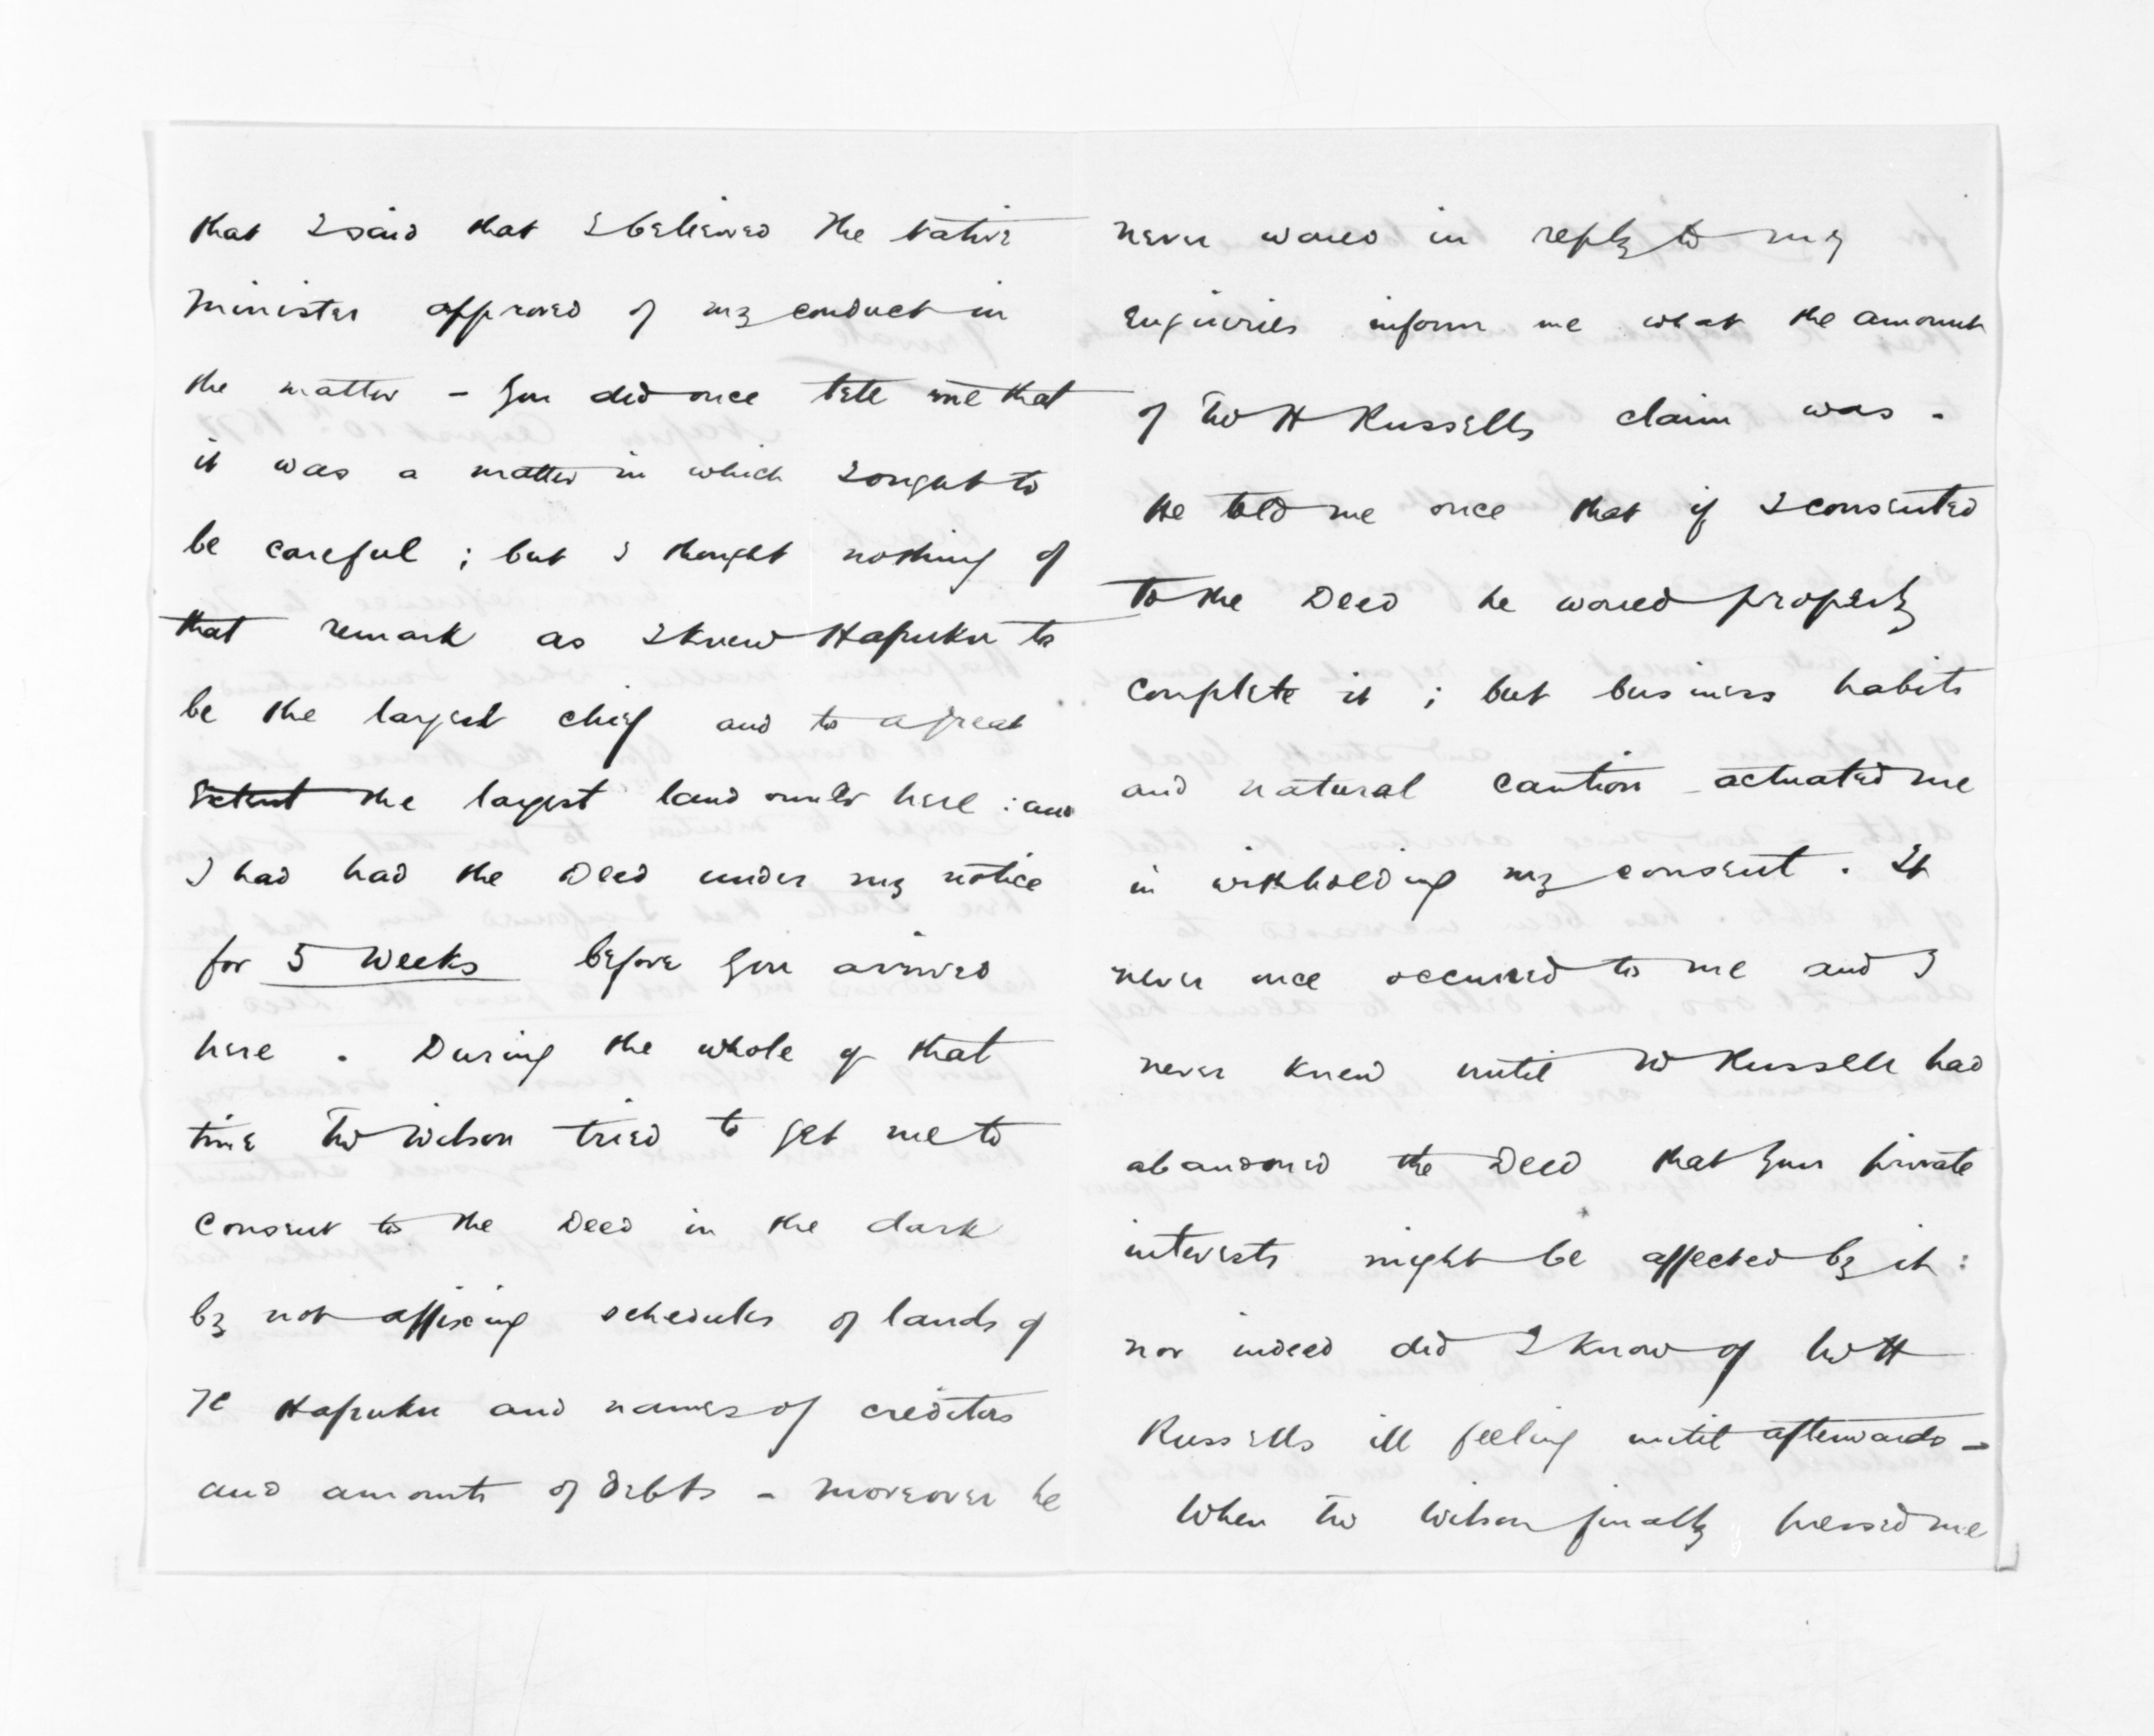 that I said that I believed the Native
Minister approved of my conduct in
the matter - You did once tell me that
it was a matter in which I ought to
be careful ; but I thought nothing of
that remark as I knew Hapuku to
be the largest chief and to a great
extent the largest land owner here : and
I had had the Deed under my notice
for 5 Weeks before you arrived
here . During the whole of that
time Mr Wilson tried to get me to
consent to the Deed in the dark
by not affixing schedules of lands of
Te Hapuku and names of creditors
and amounts of debts - moreover he
never would in reply to my
enquiries inform me what the amount
of Mr H Russells claim was -
He told me once that if I consented
to the Deed he would properly
complete it ; but business habits
and natural caution actuated me
in withholding my consent . It
never once occurred to me and I
never knew until Mr Russell had
abandoned the Deed that your private
interests might be affected by it :
nor indeed did I know of Mr H
Russells ill feeling until afterwards -
When Mr Wilson finally pressed me